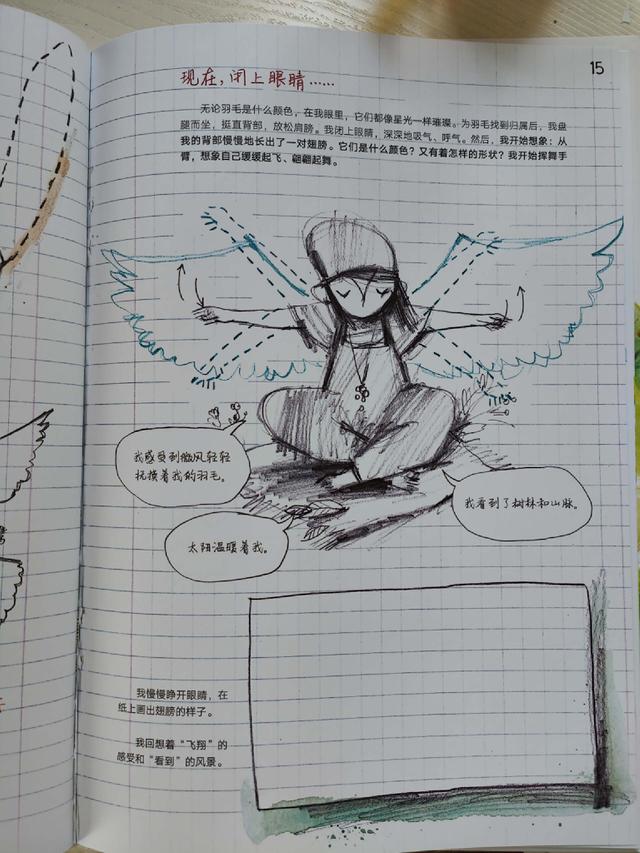 15
现在，闭上眼睛……
无论羽毛是什么颜色，在我眼里，它们都像星光一样璀璨。为羽毛找到归属后，我盘
腿而坐，挺直背部，放松肩膀。我闭上眼睛，深深地吸气、呼气。然后，我开始想象：从
我的背部慢慢地长出了一对翅膀。它们是什么颜色？又有着怎样的形状？我开始挥舞手
臂，想象自己缓缓起飞、翩翩起舞。
我感受到微风轻轻
抚摸着我的羽毛。
我看到了树林和山脉。
太阳温暖着我。
我慢慢睁开眼睛，在
纸上画出翅膀的样子。
我回想着“飞翔”的
感受和“看到”的风景。